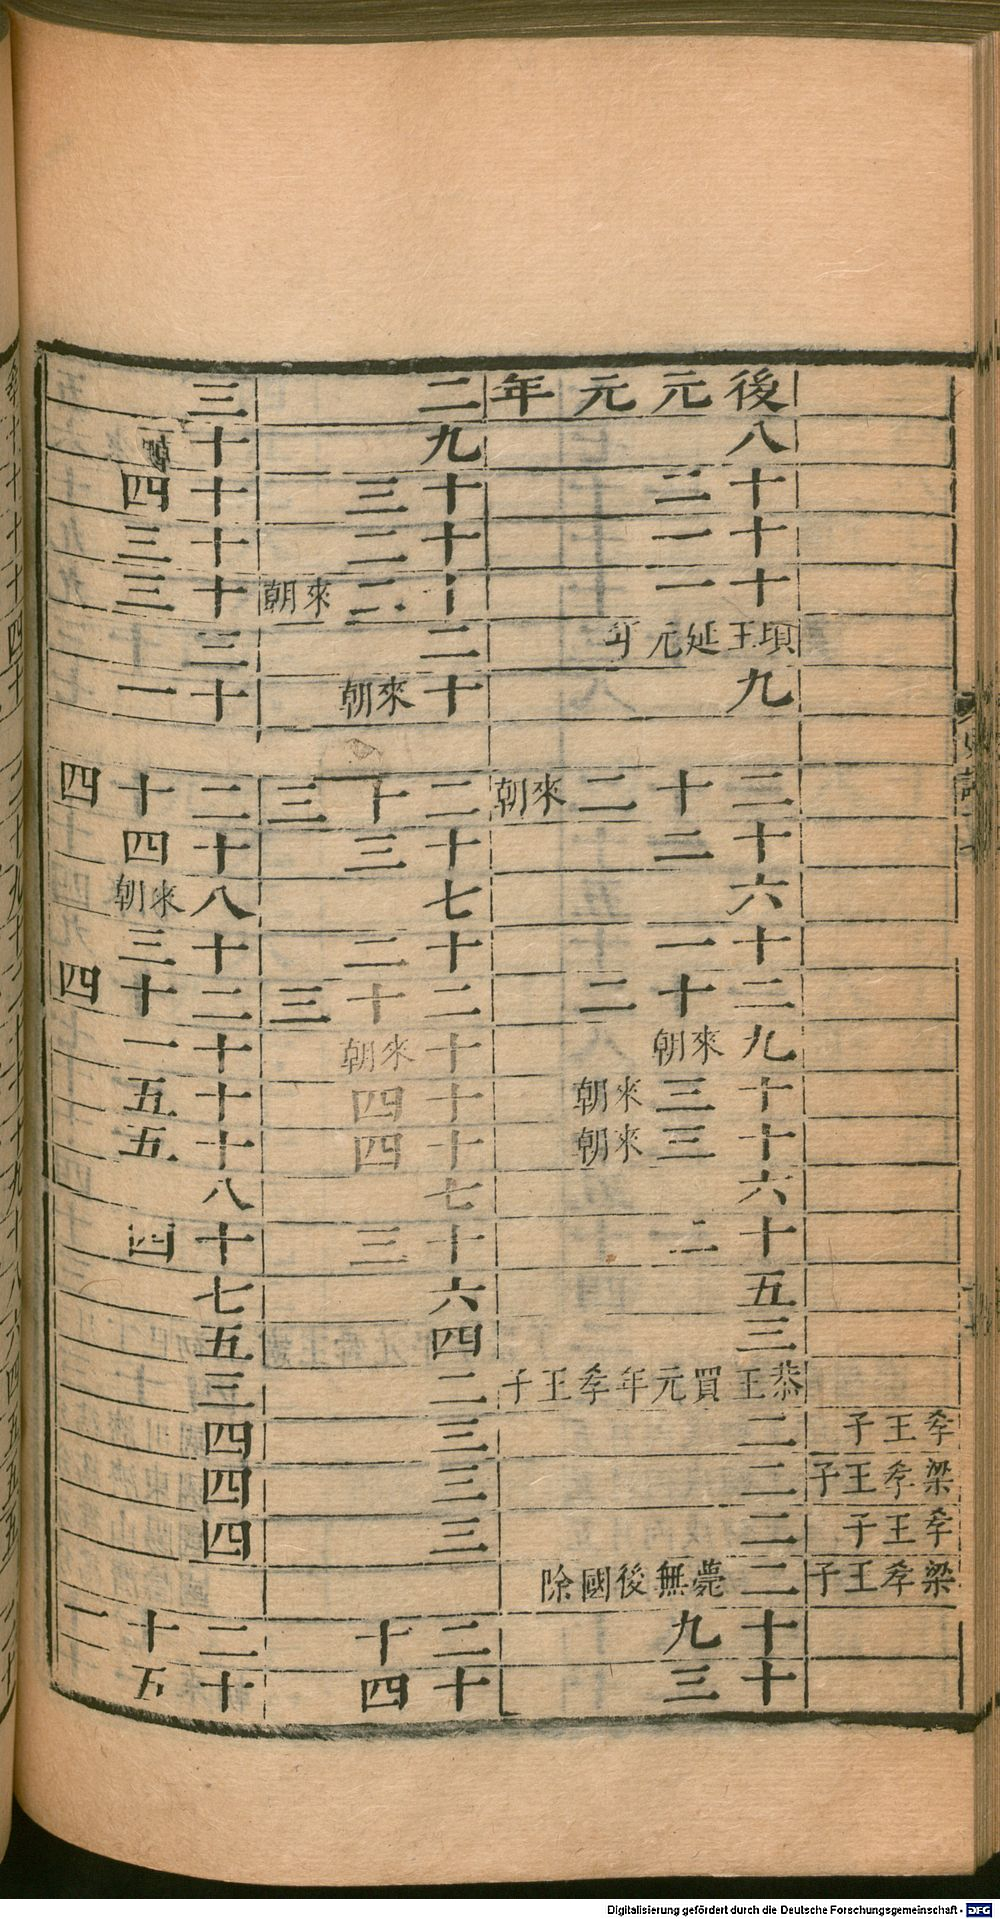 孝王子
梁孝王子
孝王子
梁孝王子
後元元年
八
十二
十一
十一
頃王延元年
九
三十二來朝
十二
六
十一
二十二
九來朝
十三來朝
十三來朝
六
十二
五
三
恭王買元年孝王子
二
二
二
二薨無後國除
十九
十三
二
九
十三
十二
十二來朝
二
十來朝
二十三
十三
七
十二
二十三
十來朝
十四
十四
七
十三
六
四
二
三
三
三
二十
十四
三
十
十四
十三
十三
三
十一
二十四
十四
八來朝
十三
二十四
十一
十五
十五
八
十四
七
五
三
四
四
四
二十一
十五
Digitalisierung gefördert durch die Deutsche Forschungsgemeinschaft - DFG